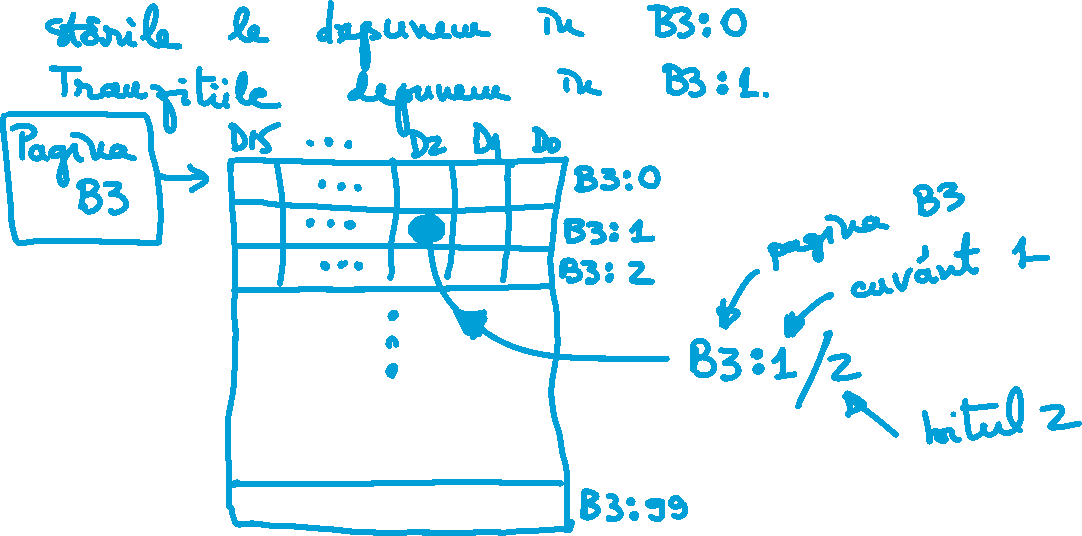 stările le depunem în B3:0
Tranzițiile depunem în B3:1.
Pagina
B3
D15 ... D2 D1 D0
... B3:0
... B3:1
... B3:2
pagina B3
cuvánt 1
B3:1/2
bitul 2
B3:99